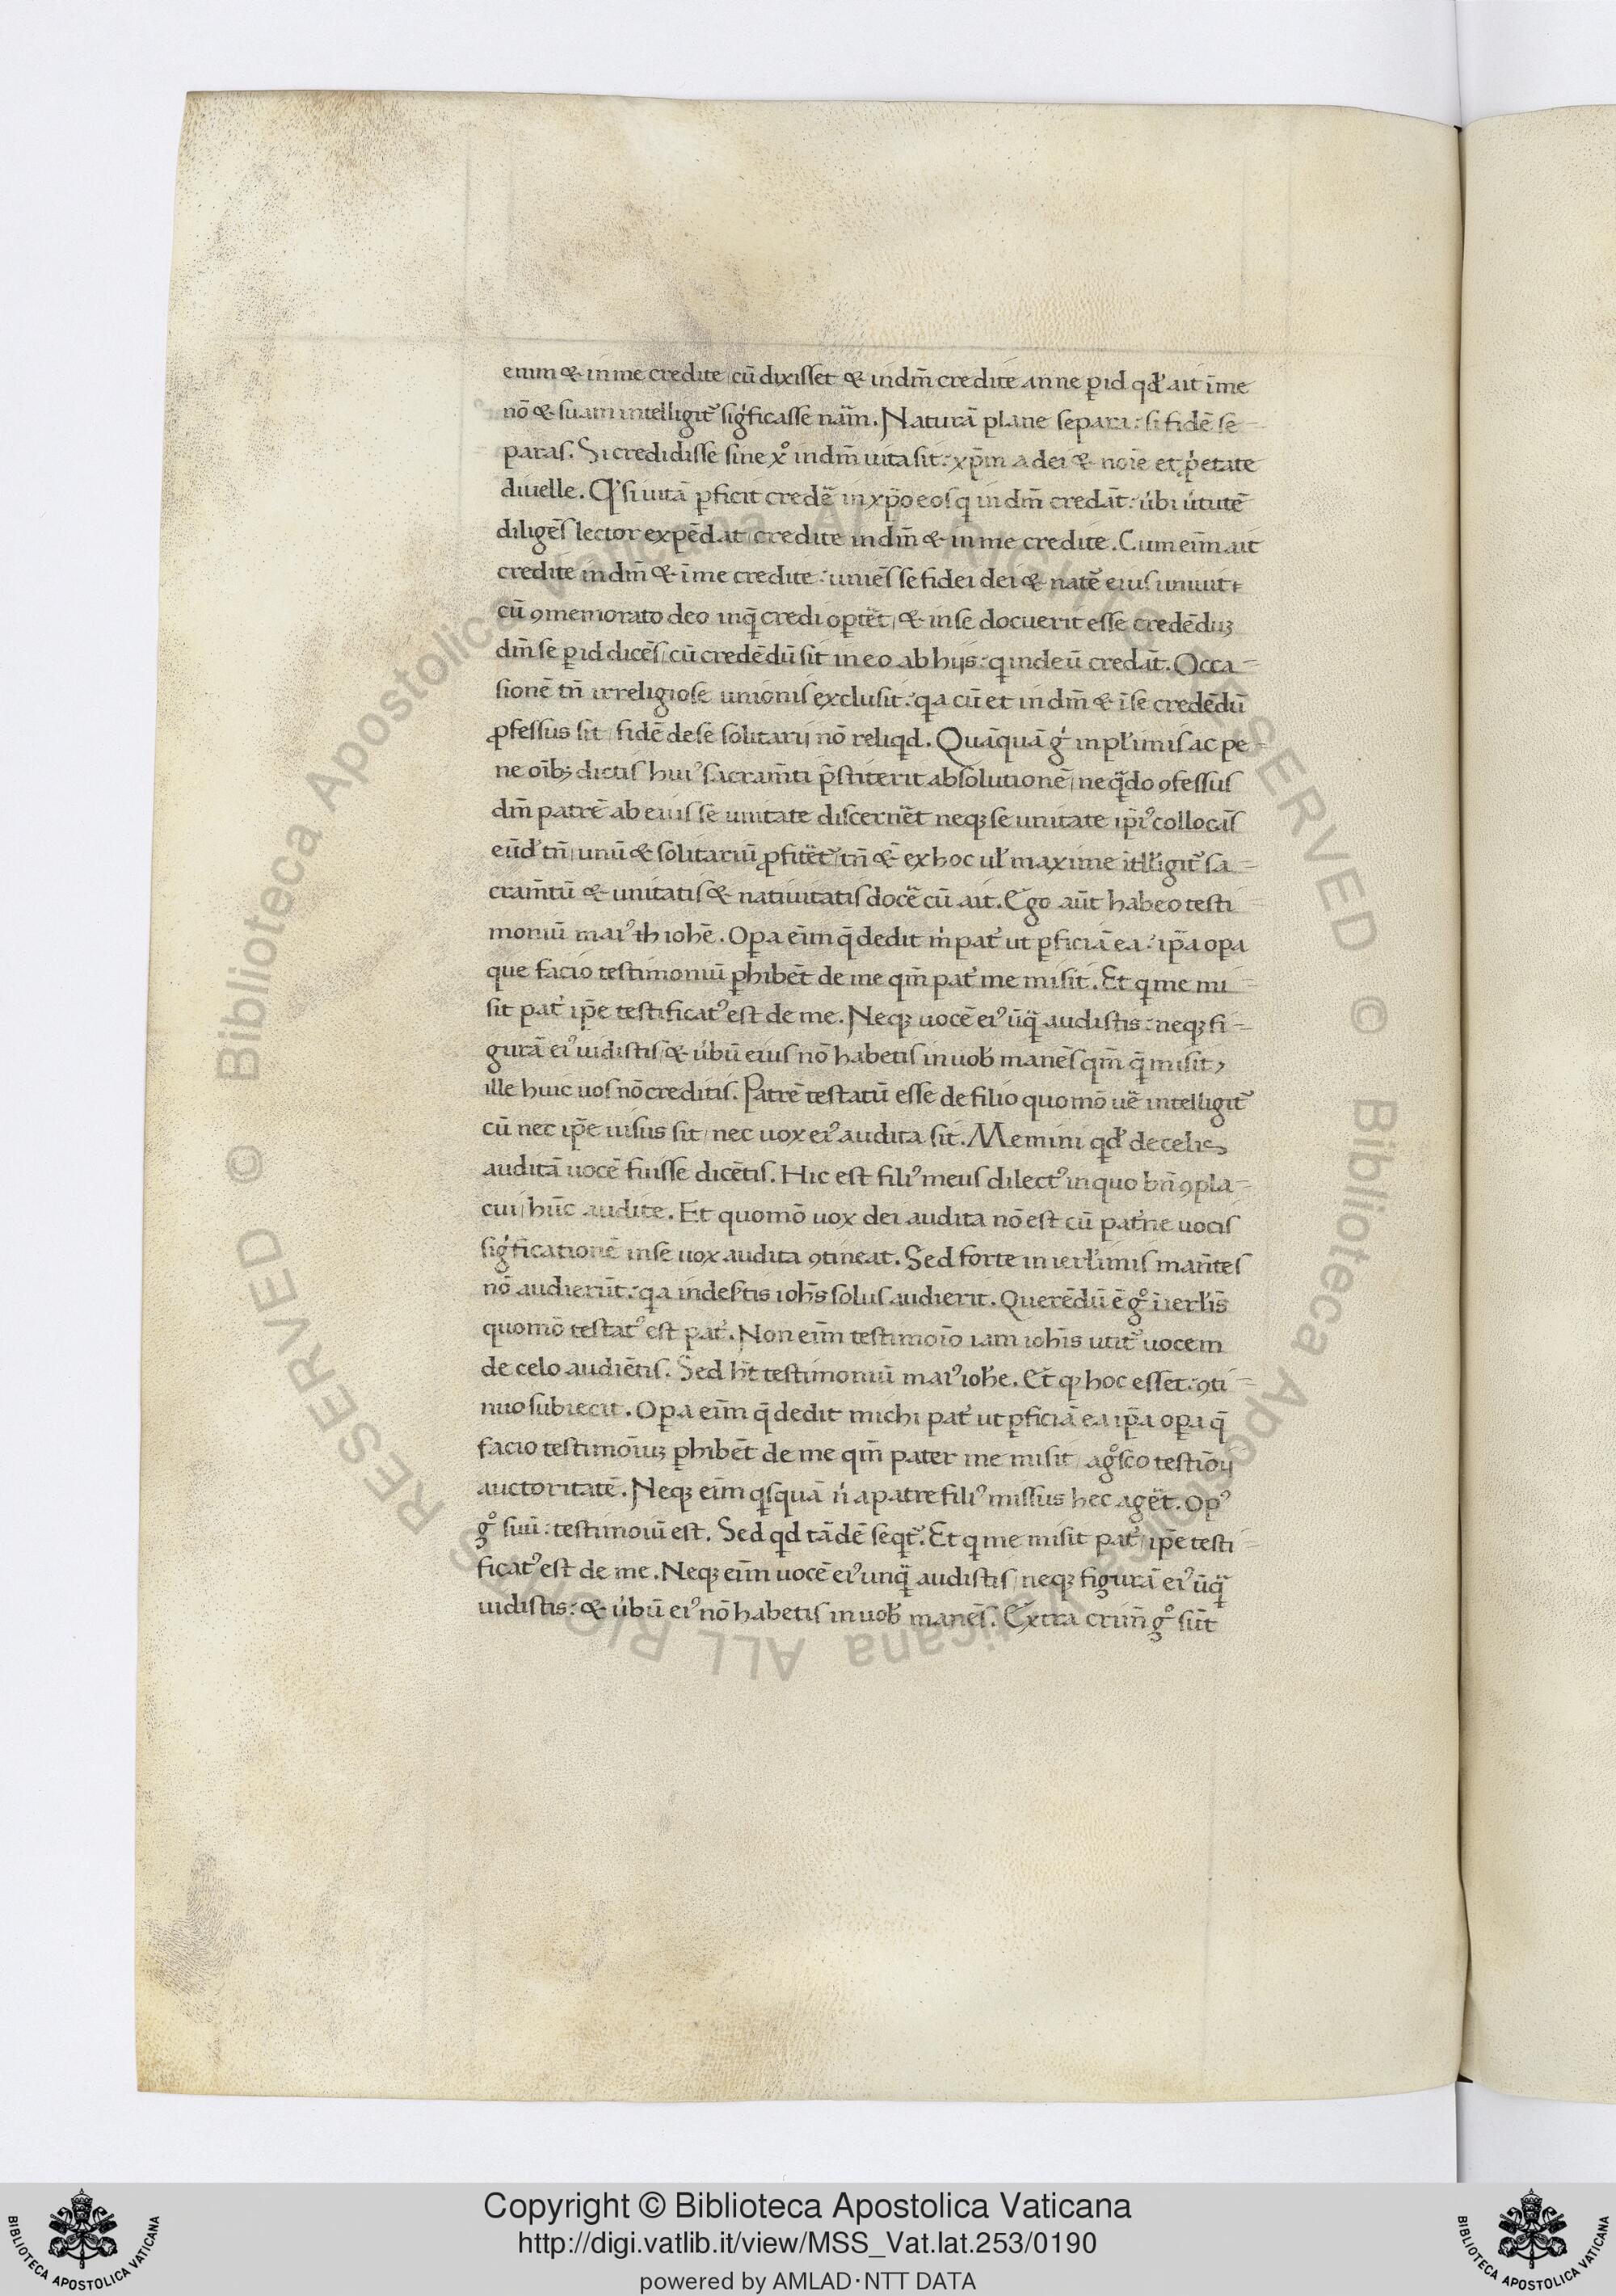 enim & in me credite / cū dixisset & in dm̄ credite an ne ꝑ id qď ait ī me
nō & suam intelligit᷑ sigͥficasse nãm. Naturā plane separa : si fidē se-
paras. Si credidisse sine xͦ in dm̄ uita sit : xp̄m a dei & noīe et ꝓpͥetate
diuelle. Qͥ si uitā ꝑficit credẽ in xp̄o eos q in dm̄ credāt : úbi útutē
diligēs lector expēdat / credite in dm̄ & in me credite. Cum eīm ait
credite in dm̄ & ī me credite : uniēs se fidei dei & natẽ eius uniuit
cū ꝯmemorato deo in q̄ credi oꝑtẽt / & in se docuerit esse credēdūꝫ
dm̄ se ꝑ id dicēs / cū credēdū sit in eo ab hijs : q in deū credāt. Occa-
sionē tn̄ irreligiose unionis exclusit : qa cū et in dm̄ & ī se credēdū
ꝓfessus sit / fidē de se solitarij nō reliqd. Quāquā gͥ in pl'imis ac pe-
ne oībꝫ dictis huiꝰ sacram̄ti p̄stiterit absolutionē / ne q̈do ꝯfessus
dm̄ patrē ab eius se unitate discernẽt neqꝫ se unitate ip̄iꝰ collocās
eūď tn̄ / unū & solitariū ꝓfitẽt᷑ tn̄ & ex hoc ul' maxime ītll'igit᷑ sa-
cram̄tū & unitatis & natiuitatis docẽ cū ait. Ego aūt habeo testi
moniū maiꝰ iohē. Oꝑa eīm q̄ dedit mͥ pat᷑ ut ꝑficiā ea : ip̄a oꝑa
que facio testimoniū ꝑhibēt de me qm̄ pat᷑ me misit. Et q me mi-
sit pat᷑ ip̄e testificatꝰ est de me. Neqꝫ uocē eiꝰ ūq̈ audistis : neqꝫ fi-
gurā eiꝰ uidistis / & úbū eius nō habetis in uob' manēs qm̄ q̄ misit,
ille huic uos nō creditis. Patrē testatū esse de filio quomō uẽ intelligit᷑
cū nec ip̄e uisus sit / nec uox eiꝰ audita sit. Memini qď de celis
auditā uocē fuisse dicētis. Hic est filiꝰ meus dilectꝰ in quo bn̄ ꝯpla-
cui / hūc audite. Et quomō uox dei audita nō est cū pat᷑ne uocis
sigͥficationē in se uox audita ꝯtineat. Sed forte in ierl'imis man̄tes
nō audierūt : qa in deſ'tis ioh̄s solus audierit. Querēdū ē gͦ ī ierl'īs
quomō testatꝰ est pat᷑. Non eīm testimoīo iam ioh̄is utit᷑ uocem
de celo audiētis. Sed h̄t testimoniū maiꝰ ioh'e. Et qꝫ hoc esset : ꝯti-
nuo subiecit. Oꝑa eīm q̄ dedit michi pat᷑ ut ꝑficiā ea ip̄a oꝑa q̄
facio testimoīuꝫ ꝑhibēt de me qm̄ pater me misit / agͦsco testīoij
auctoritatē. Neqꝫ eīm qsquā nͥ a patre filiꝰ missus hec agẽt. Opꝰ
gͦ suū : testimoiū est. Sed qd tādē seqt᷑. Et q me misit pat᷑ / ip̄e testi-
ficatꝰ est de me. Neqꝫ eīm uocē eiꝰ unq̈ audistis / neqꝫ figurā eiꝰ ūq̈
uidistis : & úbū eiꝰ nō habetis in uob' manēs. Extra crim̄ gͦ sūt
Copyright © Biblioteca Apostolica Vaticana
http://digi.vatlib.it/view/MSS_Vat.lat.253/0190
powered by AMLAD·NTT DATA